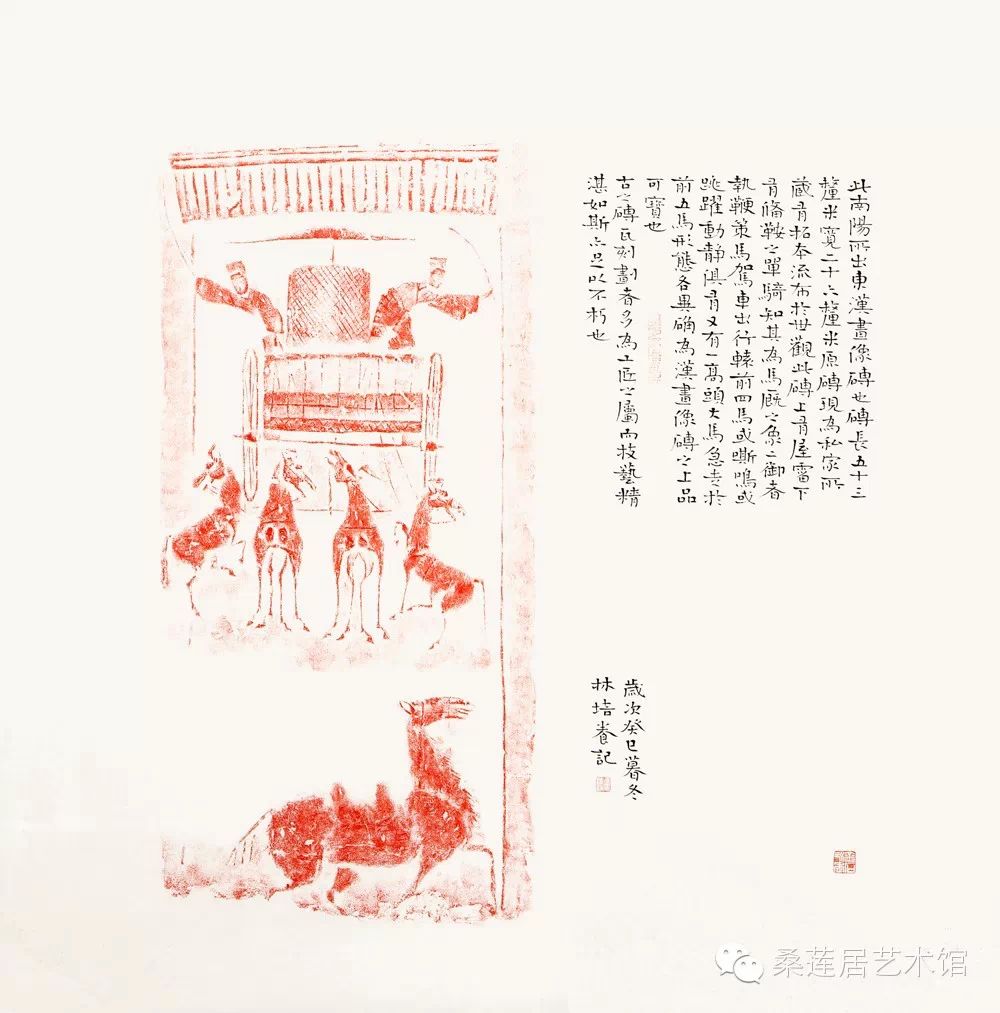 此南陽所出東漢畫像磚也磚長五十三
釐米寬二十六釐米原磚現為私家所
藏有拓本流布於世觀此磚上有屋霤下
有備鞍之單騎知其為馬厩之象二御者
執鞭策馬駕車出行轅前四馬或嘶鳴或
跳躍動靜俱有又有一高頭大馬急走於
前五馬形態各異確為漢畫像磚之上品
可寶也
古之磚瓦刻劃者多為工匠之屬而技藝精
湛如斯亦足以不朽也
歲次癸巳暮冬
林培養記
桑莲居艺术馆